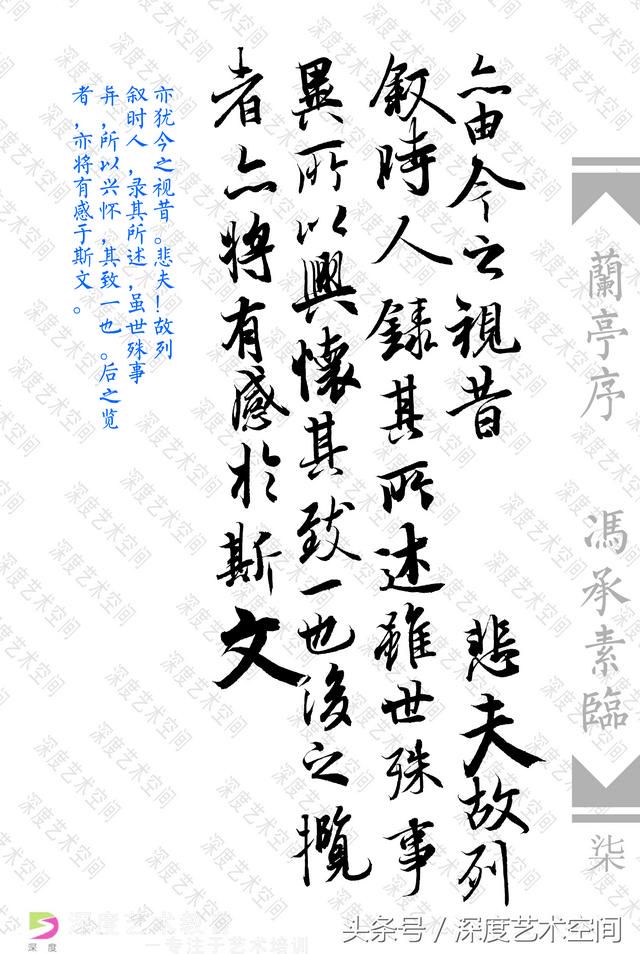 亦由今之視昔 悲夫故列
叙時人錄其所述雖世殊事
異所以興懷其致一也後之攬
者亦將有感於斯文
亦犹今之视昔。悲夫!故列
叙时人,录其所述,虽世殊事
异,所以兴怀,其致一也。后之览
者,亦将有感于斯文。
蘭亭序 馮承素臨
柒
深度
深度艺术教
一专注于艺术培训
头条号/深度艺术空间
深度艺术空间